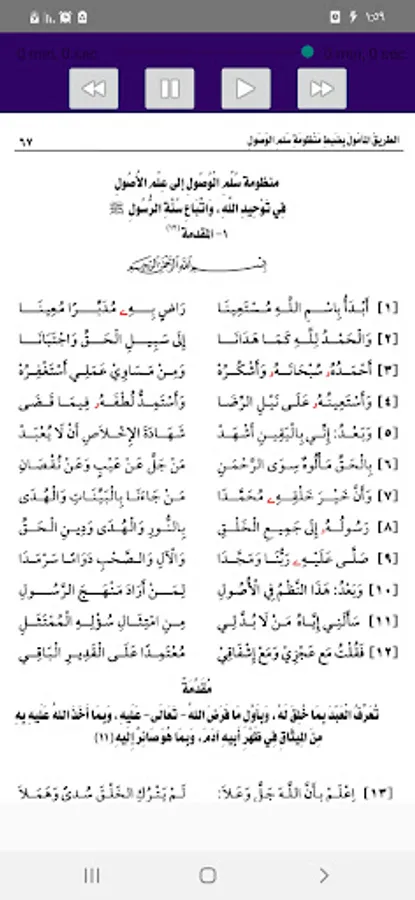 ١:٥٩
0 min, 0 sec
0 min, 0 sec
الطريق المأمول بضبط منظومة سلم الوصول
٦٧
منظومة سُلَّمِ الْوُصُولِ إلى عِلْمِ الأُصُولِ
فِي تَوْحِيدِ اللهِ، وَاتِّبَاعِ سُنَّةِ الرَّسُولِ ﷺ
١- المقدمة (١٢)
بِسْمِ اللهِ الرَّحْمَنِ الرَّحِيمِ
[١] أَبْدَأُ بِاسْمِ اللَّهِ مُسْتَعِينَا رَاضٍ بِهِۦ مُدَبِّرًا مُعِينَا
[٢] وَالْحَمْدُ لِلَّهِ كَمَا هَدَانَا إِلَى سَبِيلِ الْحَقِّ وَاجْتَبَانَا
[٣] أَحْمَدُهُۥ سُبْحَانَهُۥ وَأَشْكُرُهْ وَمِنْ مَسَاوِي عَمَلِي أَسْتَغْفِرُهْ
[٤] وَأَسْتَعِينُهُۥ عَلَى نَيْلِ الرِّضَا وَأَسْتَمِدُّ لُطْفَهُۥ فِيمَا قَضَى
[٥] وَبَعْدُ: إِنِّي بِالْيَقِينِ أَشْهَدُ شَهَادَةَ الإِخْلَاصِ أَنْ لَا يُعْبَدْ
[٦] بِالْحَقِّ مَأْلُوهٌ سِوَى الرَّحْمَنِ مَنْ جَلَّ عَنْ عَيْبٍ وَعَنْ نُقْصَانِ
[٧] وَأَنَّ خَيْرَ خَلْقِهِۦ مُحَمَّدَا مَنْ جَاءَنَا بِالْبَيِّنَاتِ وَالْهُدَى
[٨] رَسُولُهُۥ إِلَى جَمِيعِ الْخَلْقِ بِالنُّورِ وَالْهُدَى وَدِينِ الْحَقِّ
[٩] صَلَّى عَلَيْهِۦ رَبُّنَا وَمَجَّدَا وَالْآلِ وَالصَّحْبِ دَوَامًا سَرْمَدَا
[١٠] وَبَعْدُ: هَذَا النَّظْمُ فِي الْأُصُولِ لِمَنْ أَرَادَ مَنْهَجَ الرَّسُولِ
[١١] سَأَلَنِي إِيَّاهُ مَنْ لَا بُدَّ لِي مِنِ امْتِثَالِ سُؤْلِهِ الْمُمْتَثَلِ
[١٢] فَقُلْتُ مَعْ عَجْزِي وَمَعْ إِشْفَاقِي مُعْتَمِدًا عَلَى الْقَدِيرِ الْبَاقِي
مُقَدِّمَةٌ
تُعَرِّفُ الْعَبْدَ بِمَا خُلِقَ لَهُ، وَبِأَوَّلِ مَا فَرَضَ اللهُ -تَعَالَى- عَلَيْهِ، وَبِمَا أَخَذَ اللهُ عَلَيْهِ بِهِ
مِنَ الْمِيثَاقِ فِي ظَهْرِ أَبِيهِ آدَمَ، وَبِمَا هُوَ صَائِرٌ إِلَيْهِ (١١)
[١٣] اِعْلَمْ بِأَنَّ اللَّهَ جَلَّ وَعَلَا: لَمْ يَتْرُكِ الْخَلْقَ سُدًى وَهَمَلَا